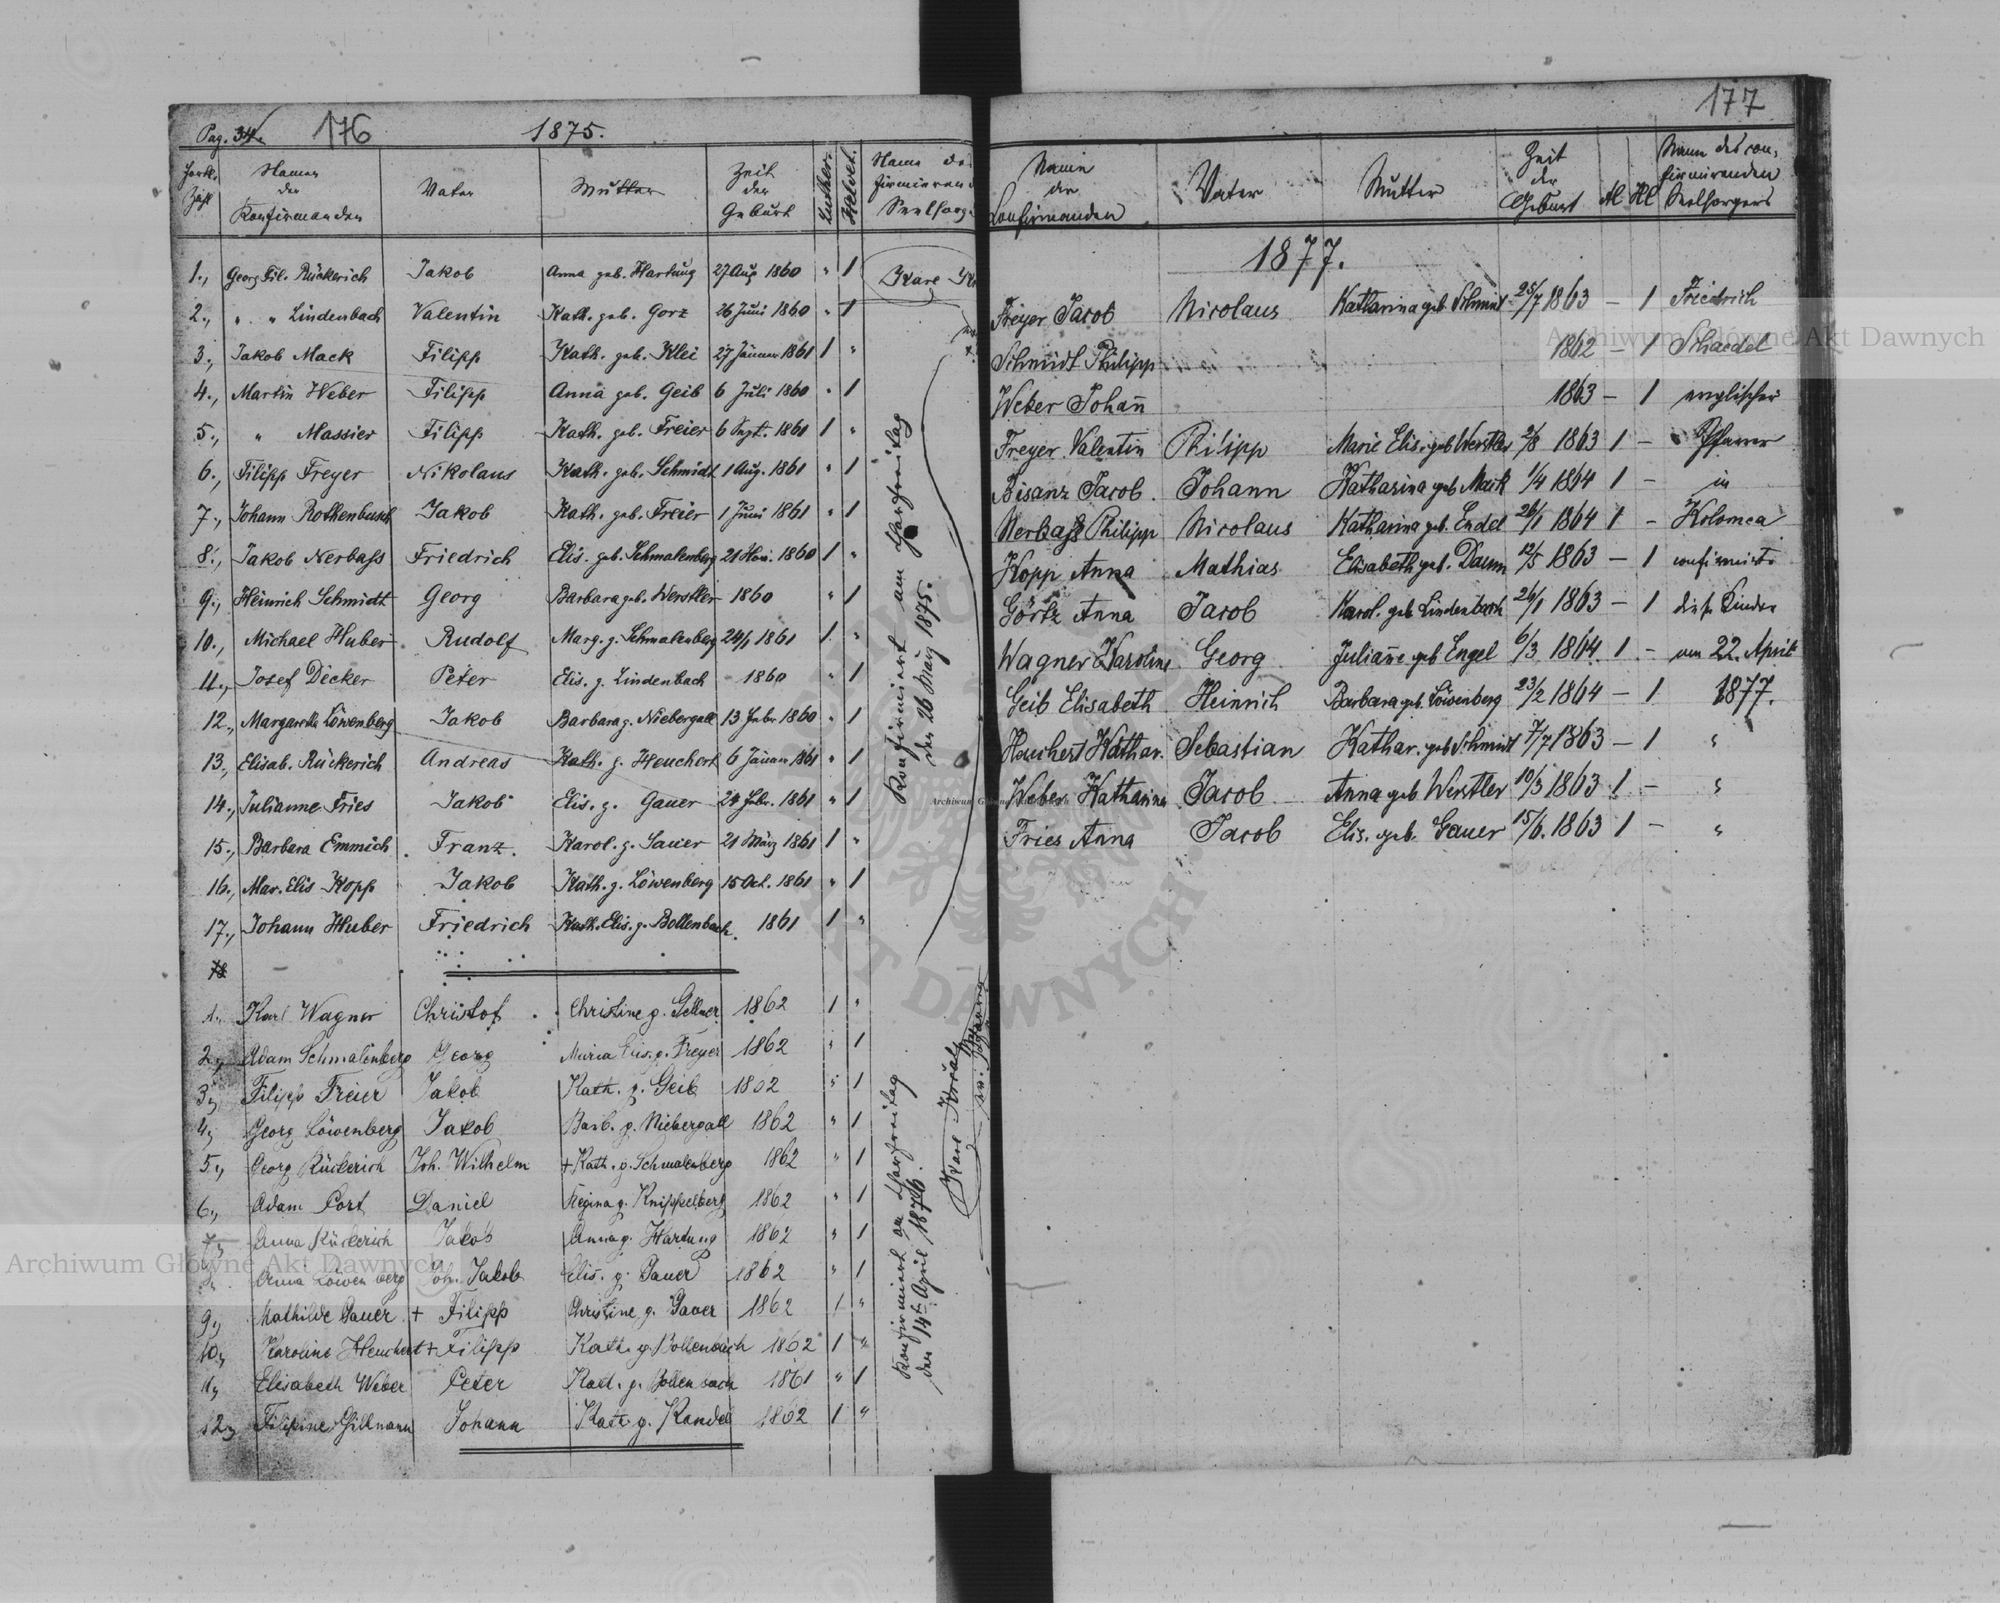 Pag. 34. 176 1875.
Namen der Konfirmanden Vater Mutter Zeit der Geburt Luther. Helvet. Name des
firmierenden Seelsorgers
1., Georg Fil. Rückerich Jakob Anna geb. Hartung 27 Aug 1860 " 1 Karl
2., " " Lindenbach Valentin Kath. geb. Gorz 26 Juni 1860 " 1
3., Jakob Mack Filipp Kath. geb. Klei 27 Jänner 1861 1 "
4., Martin Weber Filipp Anna geb. Geib 6 Juli 1860 " 1
5., " Massier Filipp Kath. geb. Freier 6 Sept. 1861 1 "
6., Filipp Freyer Nikolaus Kath. geb. Schmidt 1 Aug. 1861 " 1
7., Johann Rothenbusch Jakob Kath. geb. Freier 1 Juni 1861 " 1
8., Jakob Nerbass Friedrich Elis. geb. Schmalenberg 21 Nov. 1860 1 "
9., Heinrich Schmidt Georg Barbara geb. Werstler 1860 " 1
10., Michael Huber Rudolf Marg. g. Schmalenberg 24/1 1861 1 "
11., Josef Decker Peter Elis. g. Lindenbach 1860 " 1
12., Margaretha Löwenberg Jakob Barbara g. Niebergall 13 Febr 1860 " 1
13., Elisab. Rückerich Andreas Kath. g. Heuchert 6 Jänner 1861 " 1
14., Julianne Fries Jakob Elis. g. Gauer 24 Febr. 1861 " 1
15., Barbara Emmich Franz. Karol. g. Sauer 21 März 1861 1 "
16., Mar. Elis Kopp Jakob Kath. g. Löwenberg 15 Oct. 1861 " 1
17., Johann Huber Friedrich Kath. Elis. g. Bollenbach 1861 1 "
18
Konfirmiert am Charfreitag
den 26 März 1875.
1., Karl Wagner Christof Christine g. Gellner 1862 1 "
2., Adam Schmalenberg Georg Maria Elis. g. Freyer 1862 " 1
3., Filipp Freier Jakob Kath. g. Geib 1862 " 1
4., Georg Löwenberg Jakob Barb. g. Niebergall 1862 " 1
5., Georg Rückerich Joh. Wilhelm + Kath. g. Schmalenberg 1862 " 1
6., Adam Cort Daniel Regina g. Knippelberg 1862 " 1
7., Anna Rückerich Jakob Anna g. Hartung 1862 " 1
Anna Löwenberg Joh. Jakob Elis. g. Gauer 1862 " 1
9., Mathilde Gauer + Filipp Christine g. Gauer 1862 1 "
10., Karoline Heuchert + Filipp Kath. g. Bollenbach 1862 1 "
11., Elisabeth Weber Peter Kath. g. Bollenbach 1861 " 1
12., Filipine Gillmann Johann Kath. g. Kandel 1862 1 "
Konfirmiert am Charfreitag
den 14ten April 1876.
Karl Królz
177
Name der Confirmanden Vater Mutter Zeit der Geburt Al Hl Name des con-
firmirenden Seelsorgers
1877.
Freyer Jacob Nicolaus Katharina geb Schmidt 25/7 1863 – 1 Friedrich
Schmidt Philipp 1862 – 1 Schaedel
Weber Johan̄ 1863 – 1 englischer
Freyer Valentin Philipp Marie Elis. geb Werstler 2/8 1863 1 – Pfarrer
Bisanz Jacob. Johann Katharina geb Mack 1/4 1864 1 – in
Nerbaß Philipp Nicolaus Katharina geb. Endel 26/1 1864 1 – Kolomea
Kopp Anna Mathias Elisabeth geb. Daum 12/5 1863 – 1 confirmirte
Görtz Anna Jacob Karol. geb Lindenbach 26/1 1863 – 1 diese Kinder
Wagner Karoline Georg Julian̄e geb Engel 6/3 1864. 1. – am 22. April
Geib Elisabeth Heinrich Barbara geb. Löwenberg 23/2 1864 – 1 1877.
Heuchert Kathar. Sebastian Kathar. geb Schmidt 7/7 1863 – 1 "
Weber Katharina Jacob Anna geb Werstler 10/3 1863 1 – "
Fries Anna Jacob Elis. geb. Gauer 15/6. 1863 1 – "
Archiwum Główne Akt Dawnych
Archiwum Główne Akt Dawnych
AKT DAWNYCH